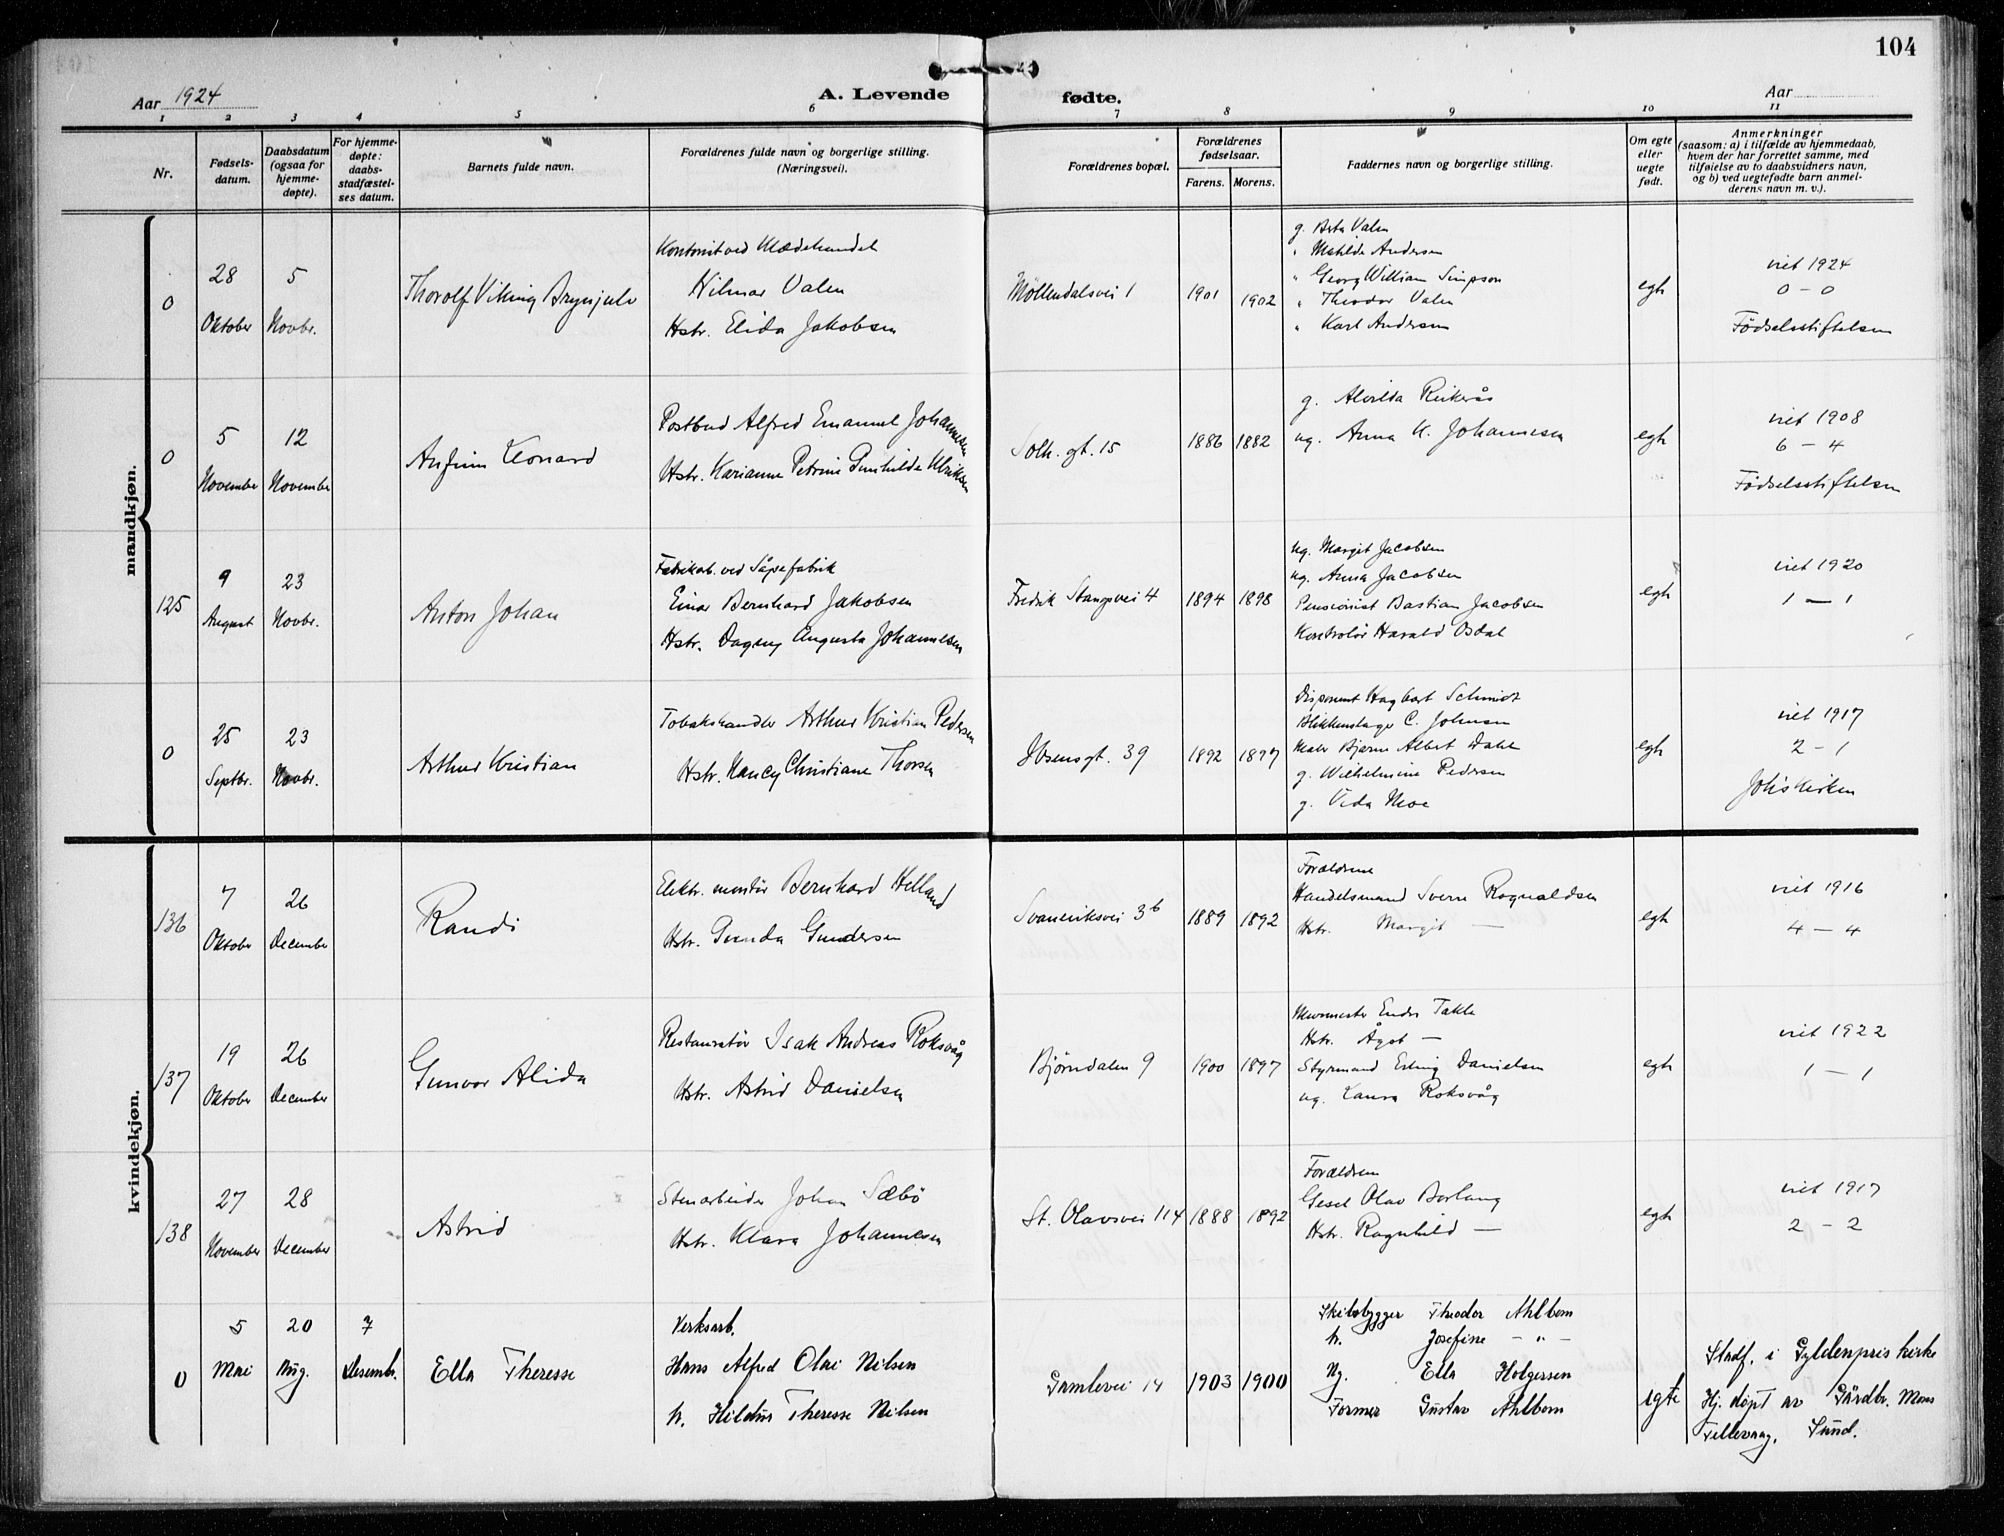 104
Aar 1924
A. Levende fødte.
Aar
1 2 3 4 5 6 7 8 9 10 11
Nr.
Fødsels-
datum.
Daabsdatum
(ogsaa for
hjemme-
døpte).
For hjemme-
døpte:
daabs-
stadfæstel-
ses datum.
Barnets fulde navn.
Forældrenes fulde navn og borgerlige stilling.
(Næringsvei).
Forældrenes bopæl.
Forældrenes
fødselsaar.
Farens. Morens.
Faddernes navn og borgerlige stilling.
Om egte
eller
uegte
født.
Anmerkninger
(saasom: a) i tilfælde av hjemmedaab,
hvem der har forrettet samme, med
tilføielse av to daabsvidners navn,
og b) ved uegtefødte barn anmel-
derens navn m. v.).
mandkjøn.
0
28
Oktober
5
Novbr.
Thorolf Viking Brynjulv
Kontorist ved
Hilmar Valen
Hstr. Elida Jakobsen
Möllendalsvei 1
1901
1902
g. Berta Valen
" Mathilde Andersen
" Georg William Simpson
" Theodor Valen
" Karl Andersen
egte
viet 1924
0 – 0
Födselsstiftelsen
0
5
November
12
November
Anfinn Leonard
Postbud Alfred Emanuel Johannesen
Hstr. Karianne Petrine Gunhilde Ulriksen
Solh. gt. 15
1886
1882
g. Alvilda
ug. Anna K. Johannesen
egte
viet 1908
6 – 4
Födselsstiftelsen
125
9
August
23
Novbr.
Anton Johan
Fabrikarb. ved Såpefabrik
Einar Bernhard Jakobsen
Hstr. Dagny Augusta Johannesen
Fredrik Stangsvei 4
1894
1898
ug. Margit Jacobsen
ug. Anna Jacobsen
Pensionist Bastian Jacobsen
Kontrolör Harald Osdal
egte
viet 1920
1 – 1
0
25
Septbr.
23
Novbr.
Arthur Kristian
Tobakshandler Arthur Kristian Pedersen
Hstr. Nancy Christiane Thorsen
Ibsensgt. 39
1892
1897
Disponent Hagbart Schmidt
Blikkenslager C. Johnsen
Maler Bjarne Albert Dahl
g. Wilhelmine Pedersen
g. Vida Moe
egte
viet 1917
2 – 1
Johskirken
kvindekjøn.
136
7
Oktober
26
December
Randi
Elektr. montör Bernhard Helland
Hstr. Gunda Gundersen
Svaneviksvei 3b
1889
1892
Forældrene
Handelsmand Sverre Rognaldsen
Hstr. Margit —
egte
viet 1916
4 – 4
137
19
Oktober
26
December
Gunvor Alida
Restauratör Isak Andreas Roksvåg
Hstr. Astrid Danielsen
Björndalen 9
1900
1897
Murmester Endre Takle
Hstr. Ågot —
Styrmand Erling Danielsen
ug. Laura Roksvåg
egte
viet 1922
1 – 1
138
27
November
28
December
Astrid
Stenarbeider Johan Sæbö
Hstr. Klara Johannesen
St. Olavsvei 114
1888
1892
Forældrene
Gesel Olav Borlaug
Hstr. Ragnhild —
egte
viet 1917
2 – 2
0
5
Mai
20
Aug.
7
Desembr.
Ella Theresse
Verksarb.
Hans Alfred Olai Nilsen
h. Hildur Theresse Nilsen
Gamlevei 14
1903
1900
Skibsbygger Theodor Ahlbom
h. Josefine – " –
Ug. Ella Holgersen
Former Gustav Ahlbom
egte
Stadf. i Gyldenpris kirke
Hj. döpt av Gårdbr. Mons
Tellevaag, Sund.